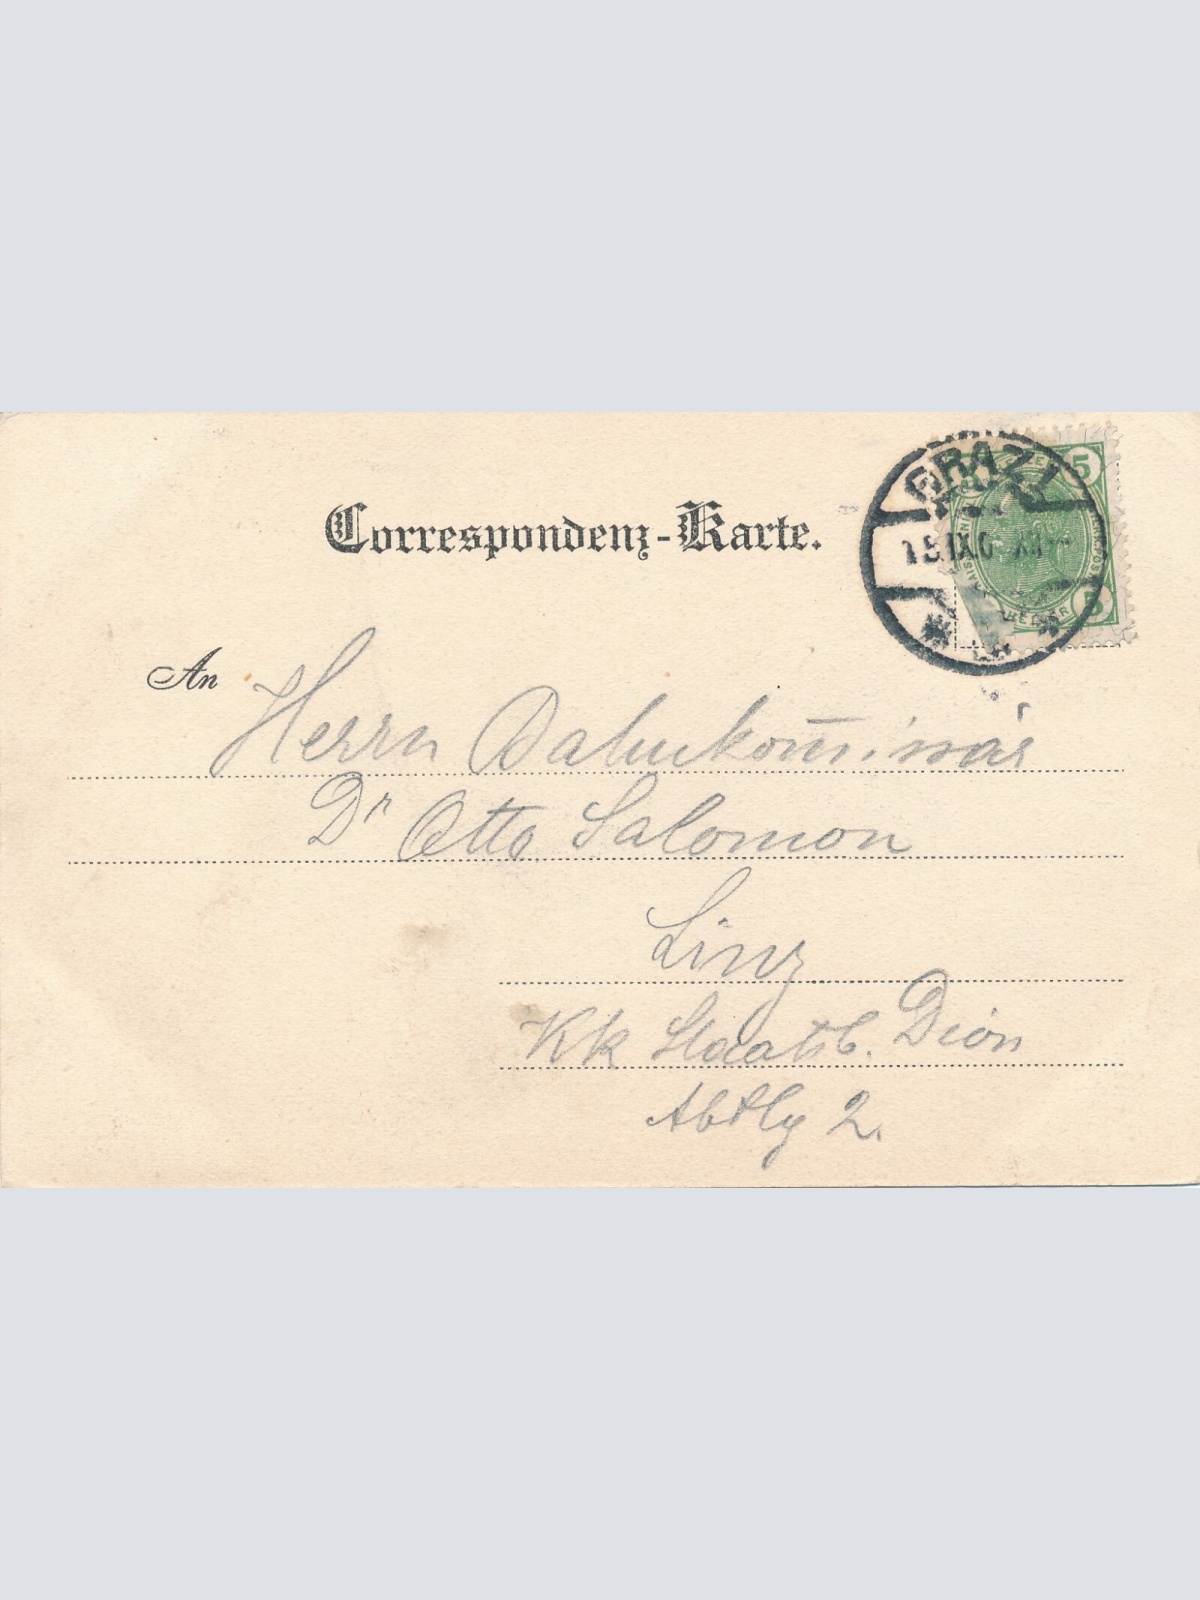 Correspondenz-Karte.
GRAZ 1
15.IX.0 XII
5
5
HELLER
An
Herrn Bahnkom̅issär
Dr Otto Salomon
Linz
KK Staatsb. Dion
Abtlg 2.